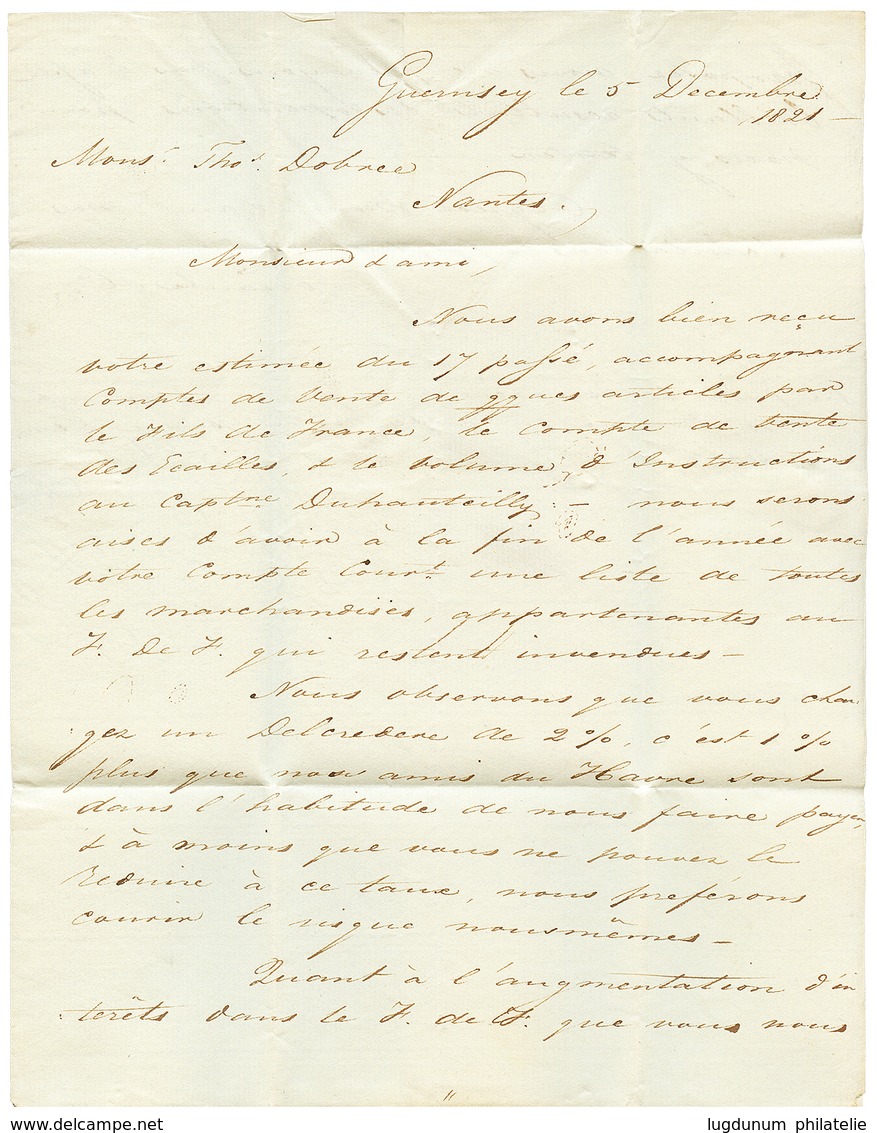 Guernsey le 5 Decembre
1821 —
Monsr. Thos. Dobree
Nantes.
Monsieur & ami,
Nous avons bien reçu
votre estimée du 17 passé, accompagnant
Comptes de Vente de qques articles par
le Fils de France, le Compte de Vente
des Ecailles, & le volume d'Instructions
au Captne Duhautcilly — nous serons
aises d'avoir à la fin de l'année avec
votre Compte Court. une liste de toutes
les marchandises, appartenantes au
F. De F. qui restent invendues —
Nous observons que vous char
gez un Delcredere de 2%, c'est 1%
plus que nos amis du Havre sont
dans l'habitude de nous faire payer,
& à moins que vous ne pouvez le
reduire à ce taux, nous preférons
courir le risque nousmêmes —
Quant à l'augmentation d'in
terêts dans le F. de F. que vous nous
delcampe.net
lugdunum philatelie